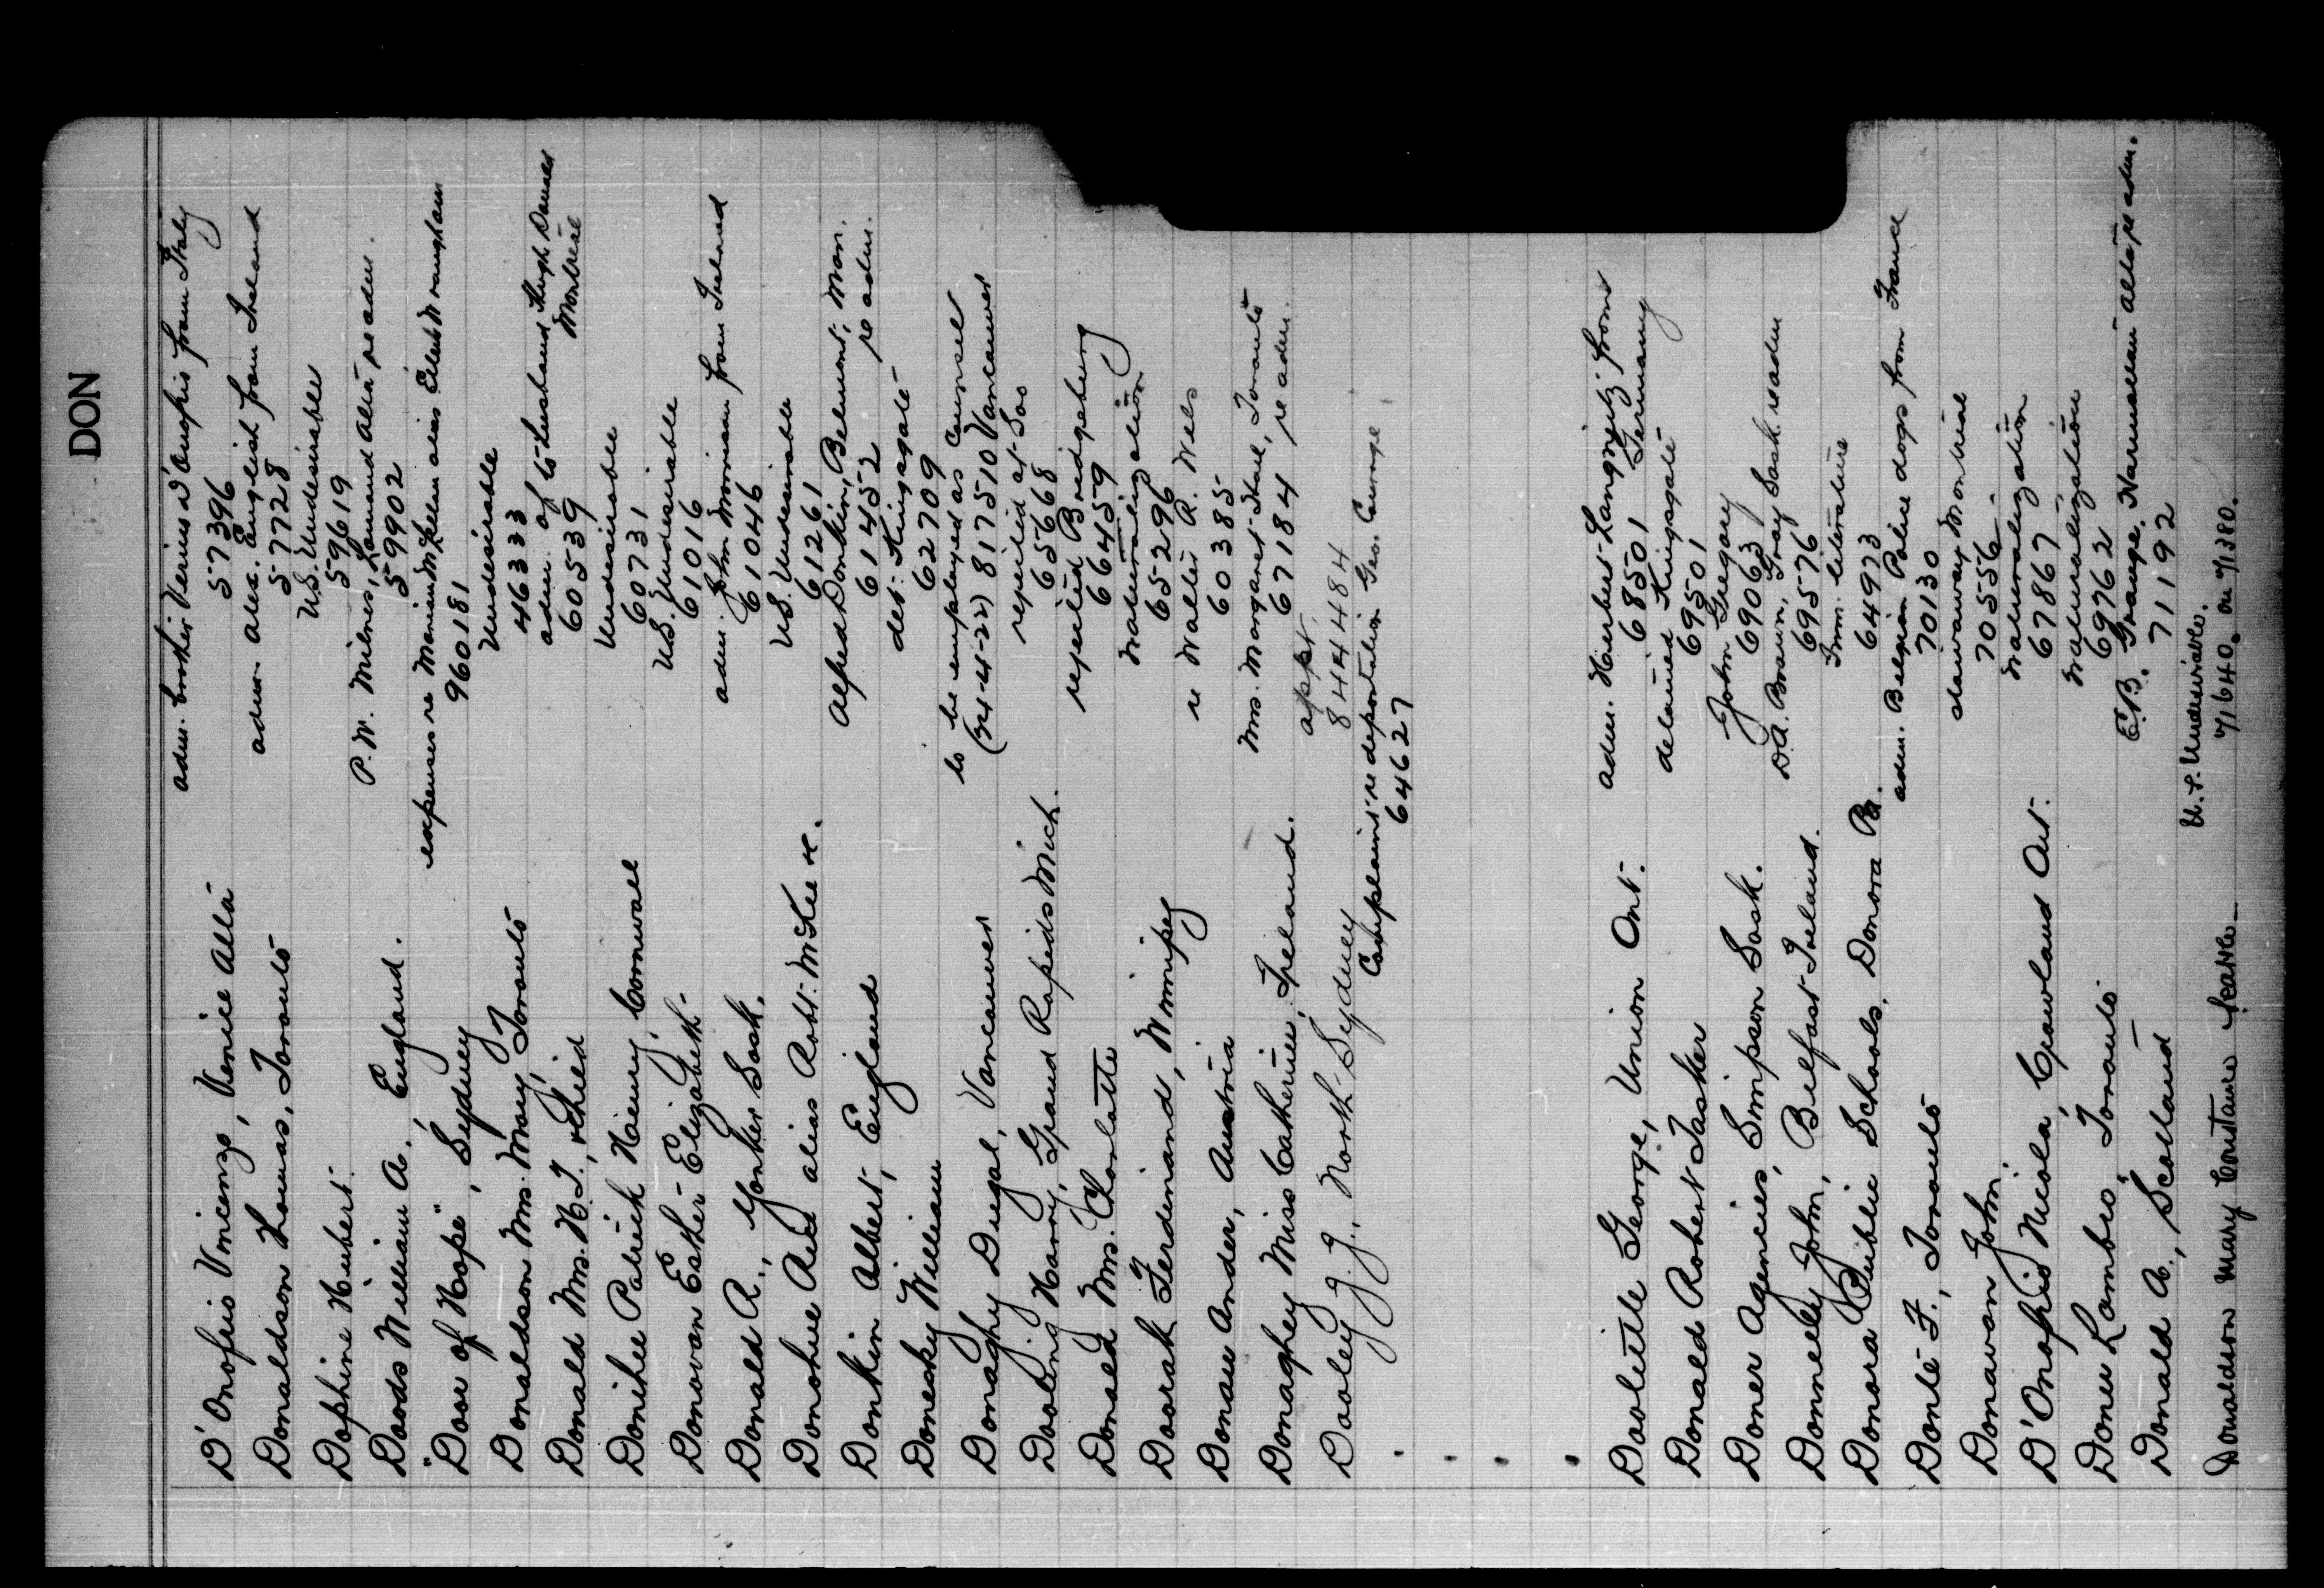 DON
D'Onofrio Vincenzo, Venice Alta adm. brother Verino D'Onofrio from Italy
57396
Donaldson Thomas, Toronto adm. Alex. English from Ireland
57728
Dophine Hubert. U.S. Undesirable
59619
Doods William A., England. P.W. Milnes, Lomond Alta re adm.
59902
"Door of Hope", Sydney expenses re Marian McLean alias
960181
Donaldson Mrs. Mary, Toronto Undesirable
46333
Donald Mrs. H.J., & Child adm. of to husband Hugh Donald
60539 Montreal
Donihee Patrick Henry, Cornwall Undesirable
60731
Donovan Esther Elizabeth. U.S. Undesirable
61016
Donald R., Yonker Sask. adm. John Morrison from Ireland
61046
Donohue Red alias Robt. McKee. U.S. Undesirable
61261
Donkin Albert, England Alfred Donkin, Belmont, Man.
61452 re adm.
Donesky William det. Kingsgate
62709
Donaghy Dugal, Vancouver to be employed as Counsel
(24-4-22) 817510 Vancouver
Dooling Harry, Grand Rapids Mich. rejected at Soo
65668
Donald Mrs. Charlotte rejected Bridgeburg
66459
Doorak Ferdinand, Winnipeg Naturalization
65296
Donau Ander, Austria re Walter R. Wels
60385
Donaghey Miss Catherine, Ireland. Mrs. Margaret Toronto
67184 re adm.
Dooley J.J., North Sydney appt.
844484
Complaint re deportation Geo. Courage
64627
Doolittle George, Union Ont. adm. Herbert Langneutz from
68501 Germany
Donald Robert Tasker detained Kingsgate
69501
Doner Agencies, Simpson Sask. John Gregory
69063
Donnelly John, Belfast Ireland. D.A. Brown, Gray Sask. re adm
69576
Donora Public Schools, Donora Pa. Imm. literature
64973
Donlé F., Toronto adm. Belgian Police dogs from France
70130
Donavan John. stowaway Montreal
70556
D'Onofrio Nicola, Crowland Ont. Naturalization
67867
Doner Lombro, Toronto. Naturalization
69762
Donald A., Scotland E.B. Grange, Alta re adm.
71192
Donaldson Mary Constance Seattle U.S. Undesirable.
71640. on 71380.